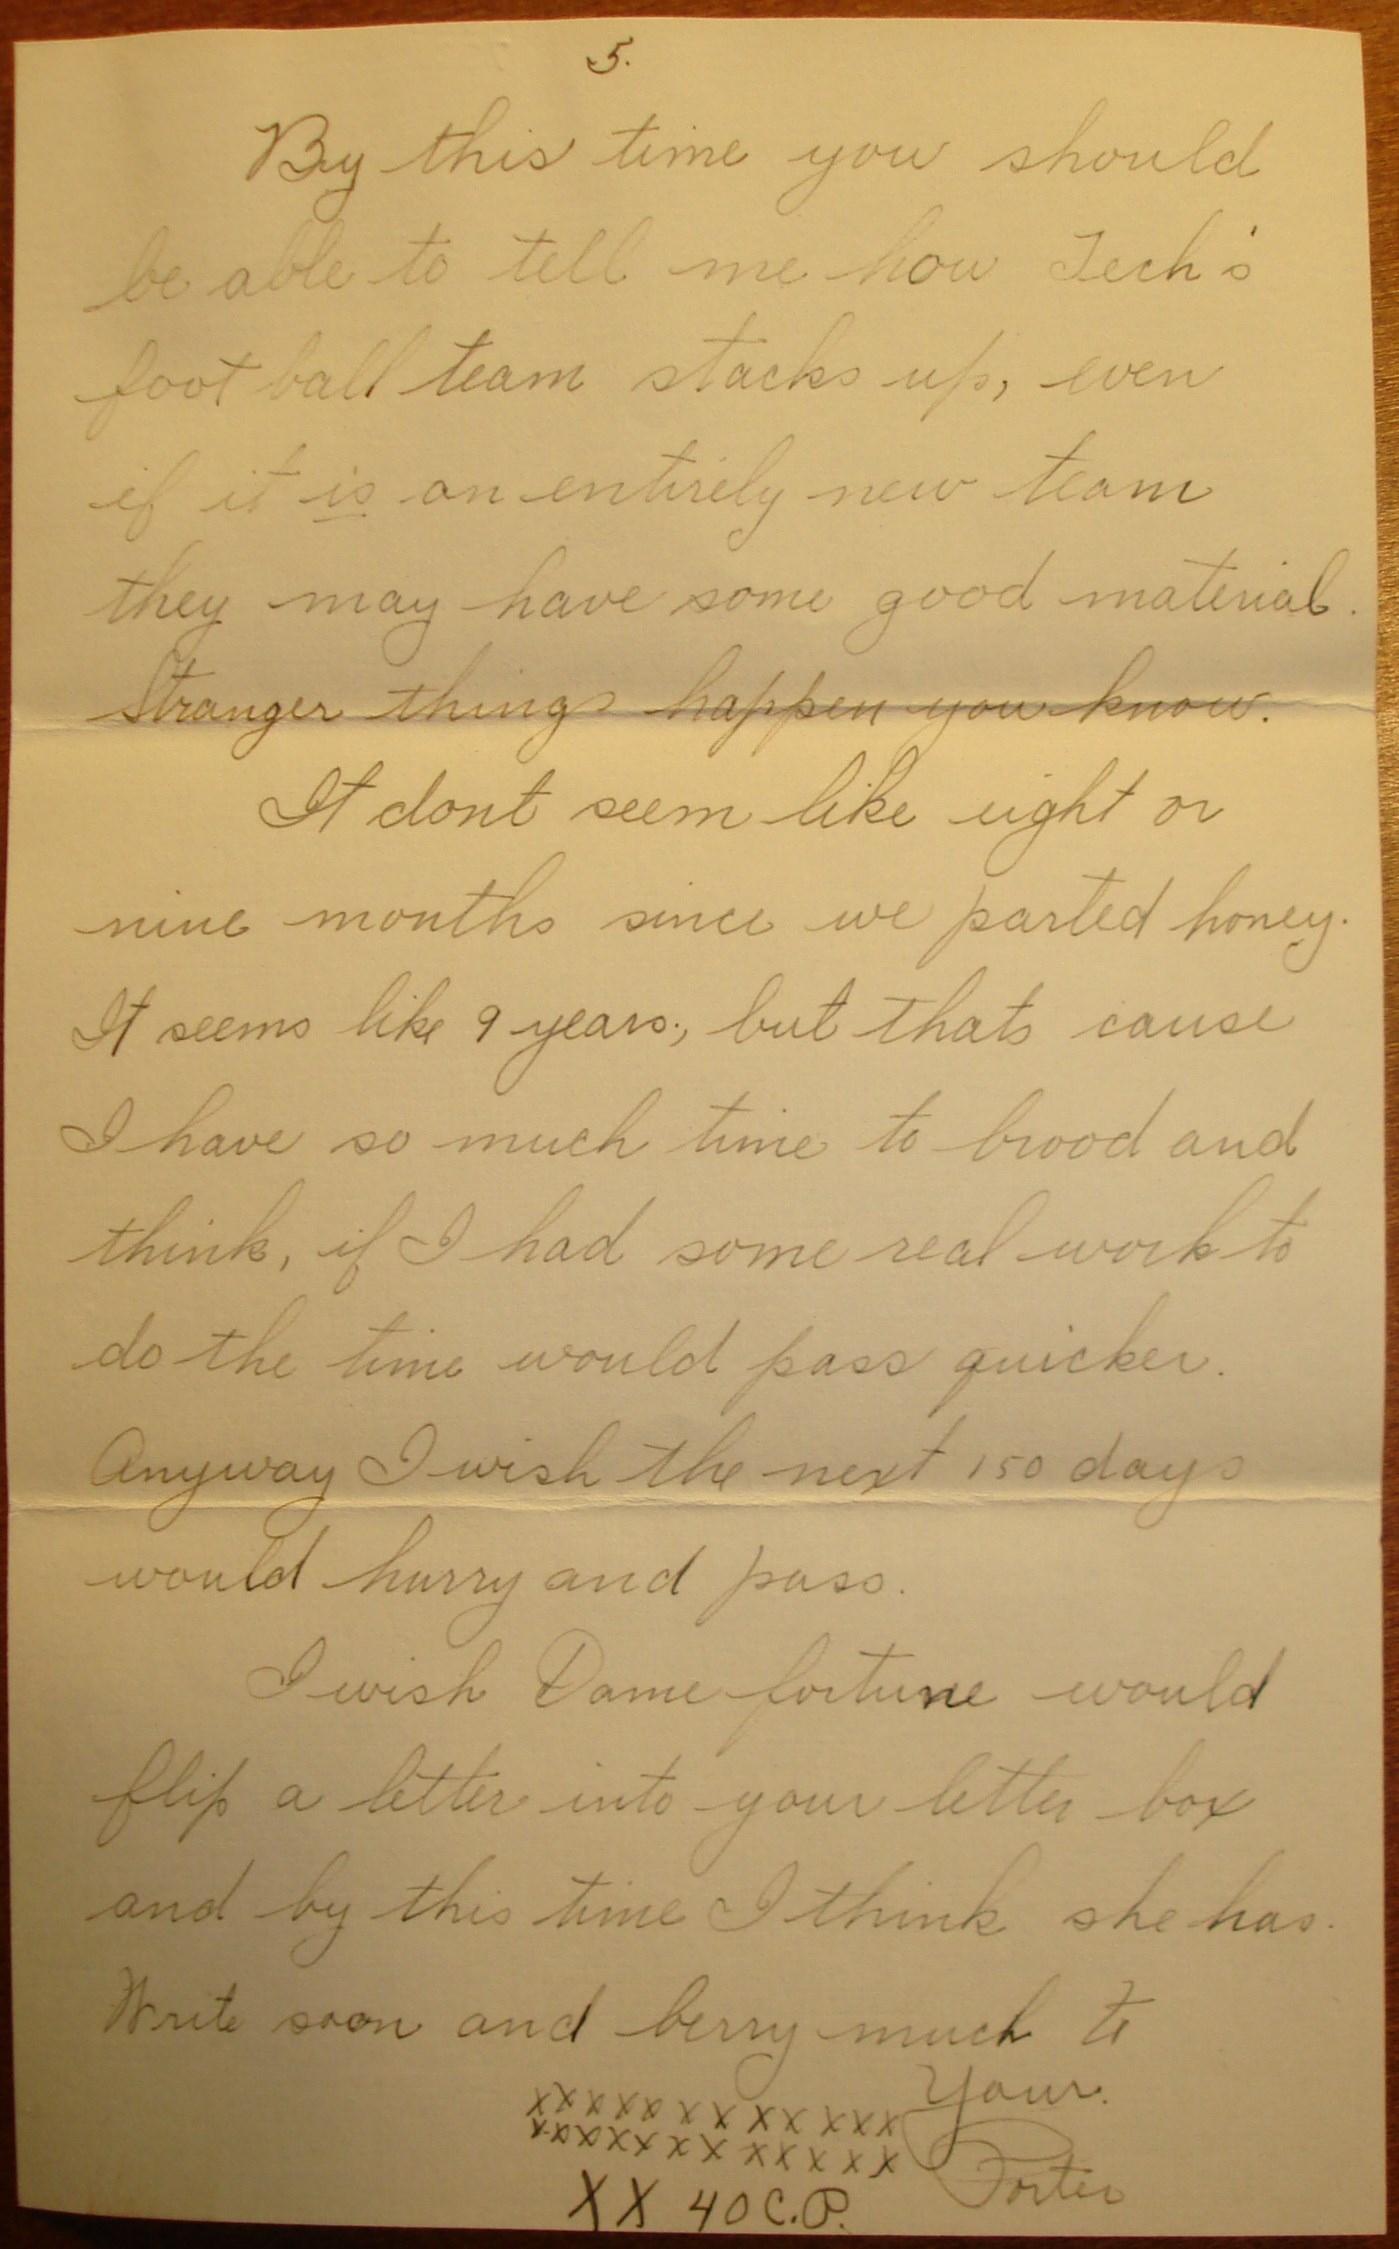 5.
By this time you should
be able to tell me how Tech's
foot ball team stacks up, even
if it is an entirely new team
they may have some good material.
Stranger things happen you know.
It dont seem like eight or
nine months since we parted honey.
It seems like 9 years, but thats cause
I have so much time to brood and
think, if I had some real work to
do the time would pass quicker.
Anyway I wish the next 150 days
would hurry and pass.
I wish Dame fortune would
flip a letter into your letter box
and by this time I think she has.
Write soon and berry much to
Your.
xxxxx x x xx xxx
xxxxx x x x x x x x
Porter
XX 40 C.P.